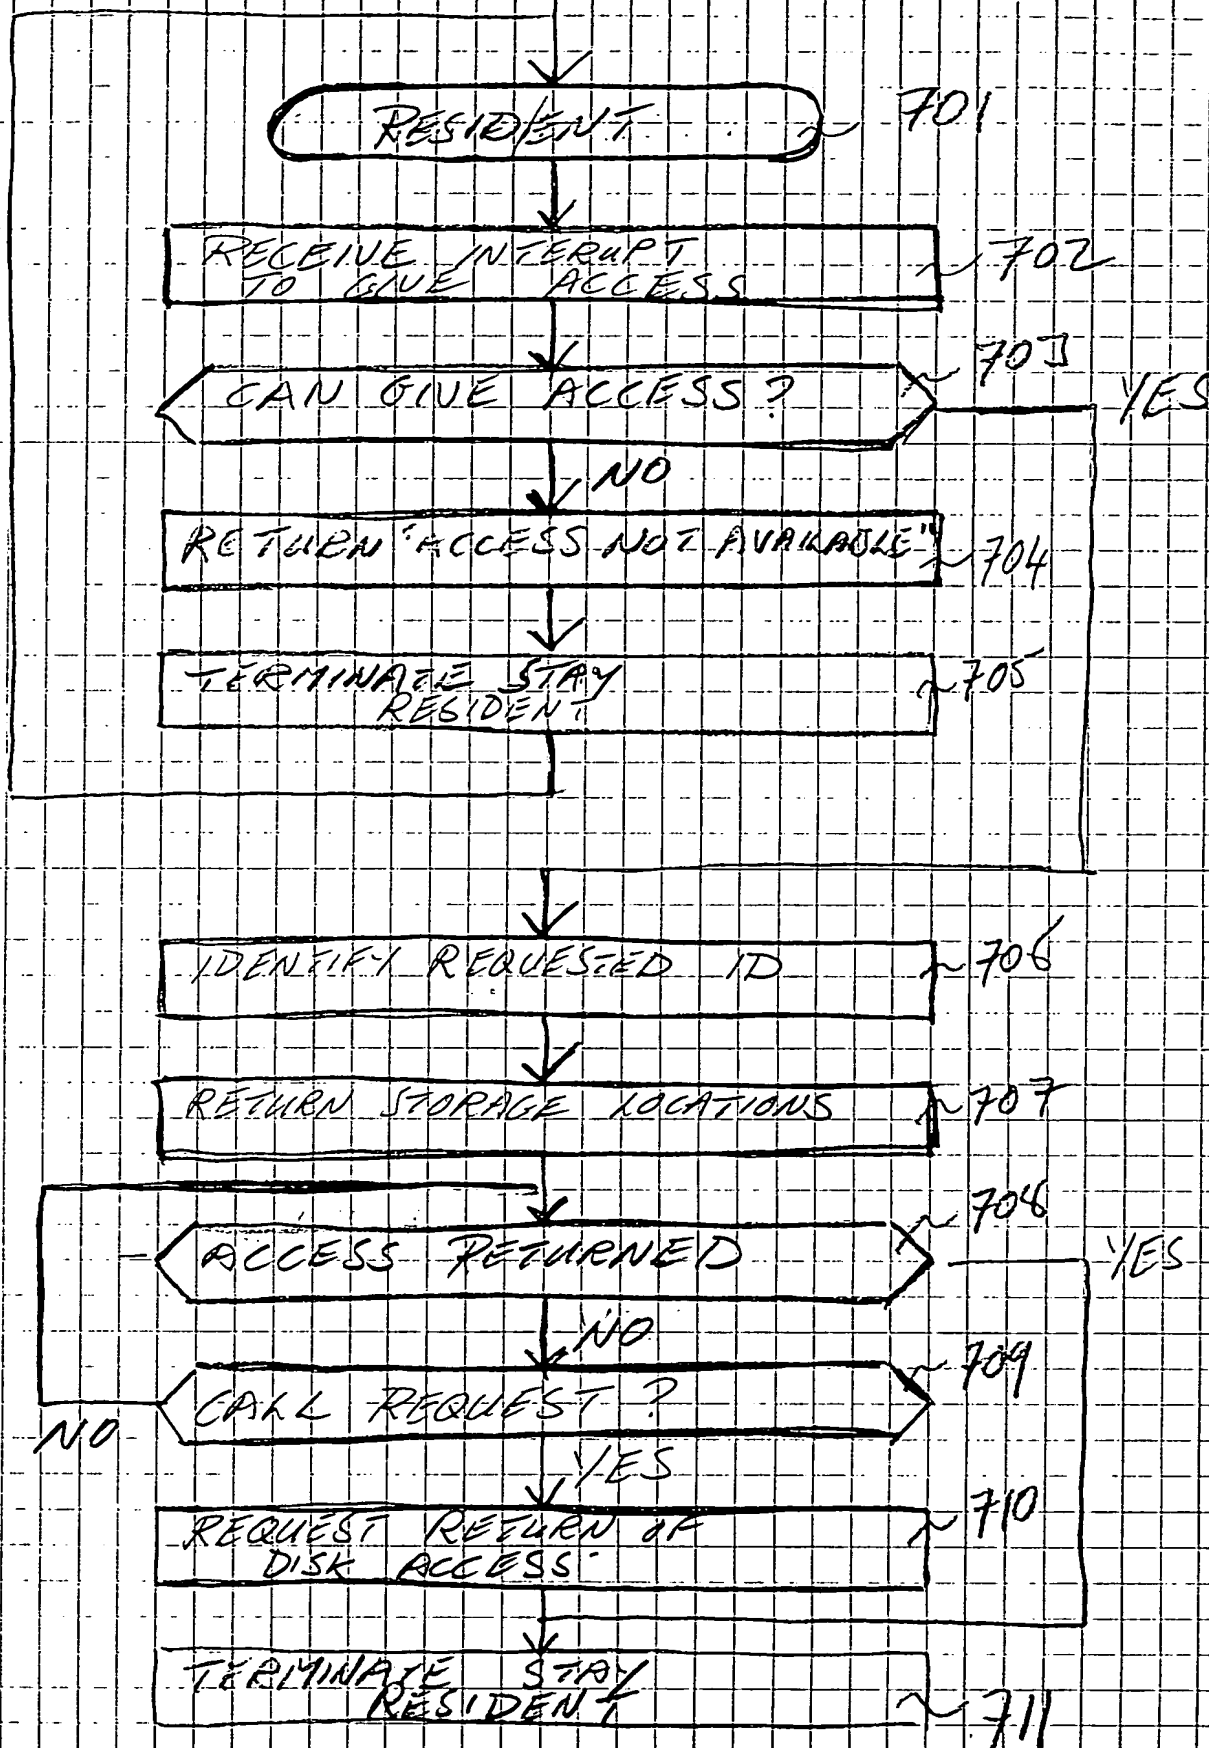 RESIDENT 701
RECEIVE INTERUPT
TO GIVE ACCESS 702
CAN GIVE ACCESS? 703
YES
NO
RETURN "ACCESS NOT AVAILABLE" 704
TERMINATE STAY
RESIDENT 705
IDENTIFY REQUESTED ID 706
RETURN STORAGE LOCATIONS 707
ACCESS RETURNED 708
YES
NO
CALL REQUEST? 709
NO
YES
REQUEST RETURN OF
DISK ACCESS 710
TERMINATE STAY
RESIDENT 711